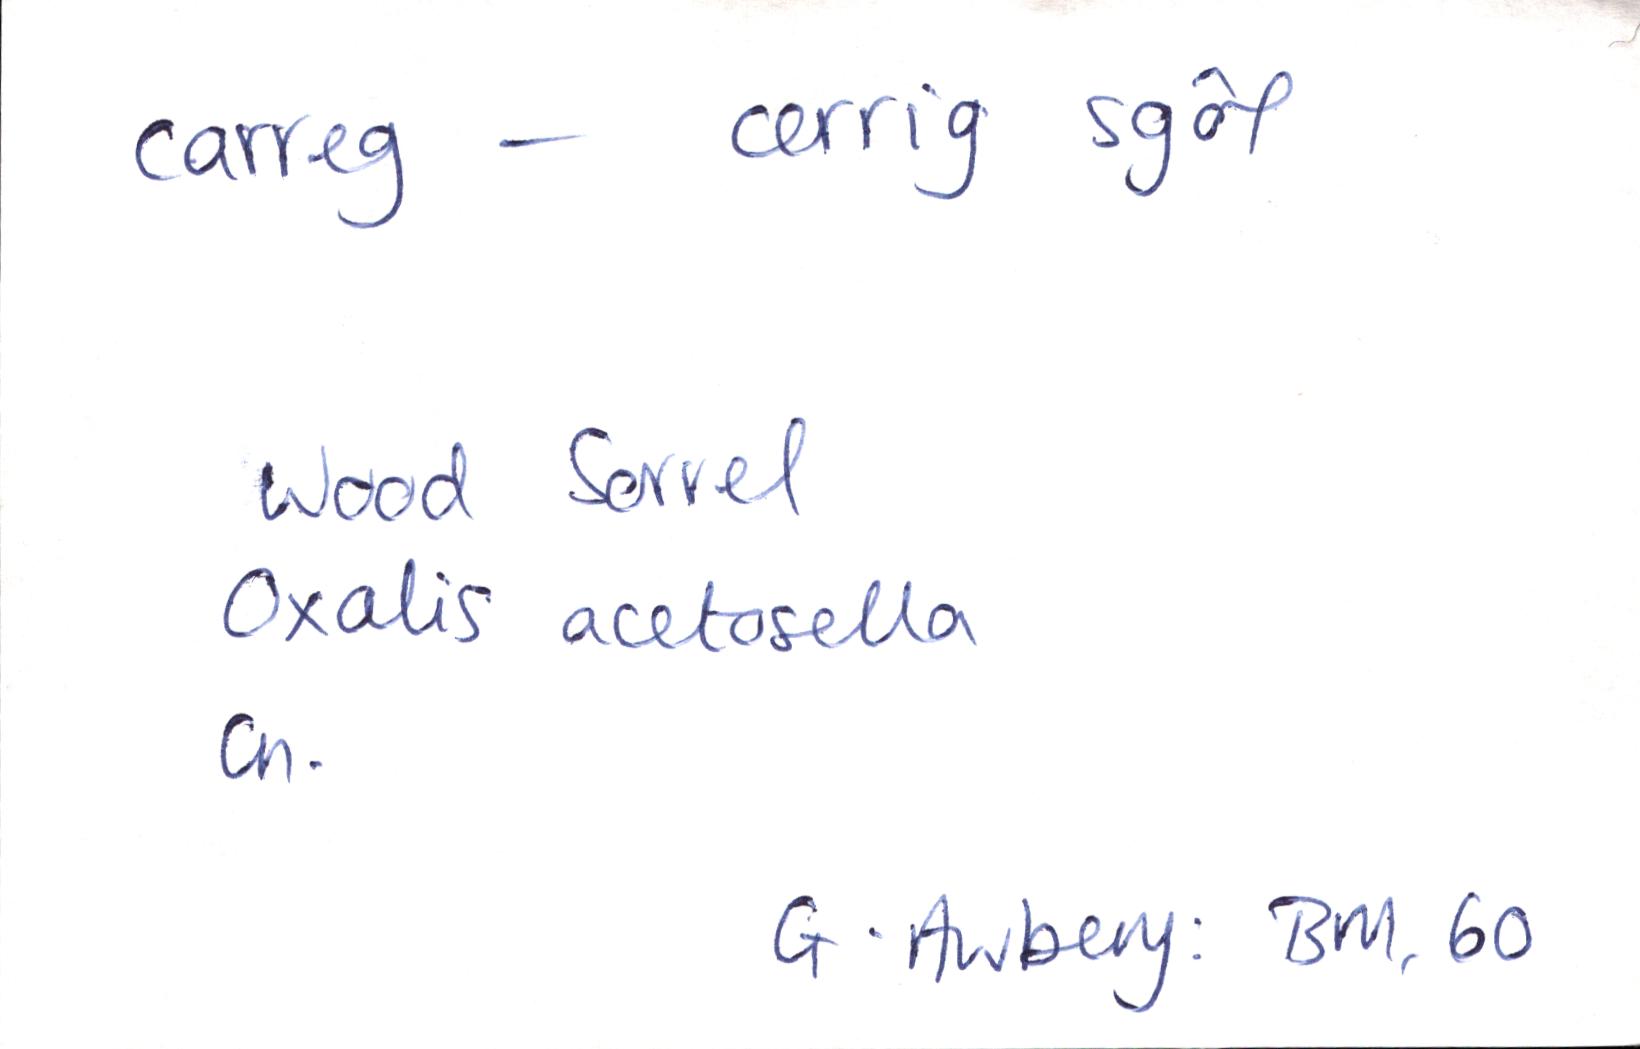 carreg – cerrig sgôl
Wood Sorrel
Oxalis acetosella
Cn.
G. Awbery: BM, 60